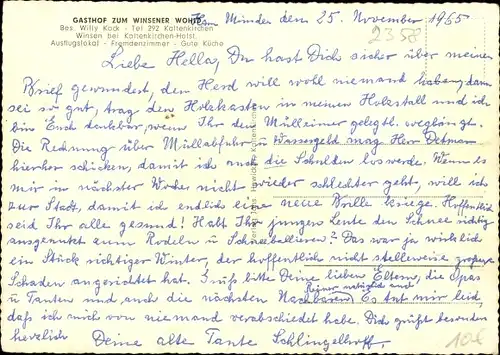 GASTHOF ZUM WINSENER WOHLD
Bes. Willy Kock - Tel 292 Kaltenkirchen
Winsen bei Kaltenkirchen-Holst.
Ausflugslokal - Fremdenzimmer - Gute Küche
Hann Münden den 25. November 1965
2358
Liebe Hella, Du hast Dich sicher über meinen
Brief gewundert, den Herd will wohl niemand haben, dann
sei so gut, trag den Holzkasten in meinen Holzstall und ich
bin Euch dankbar, wenn Ihr den Mülleimer gelegtl. weghängt.
Die Rechnung über Müllabfuhr u. Wassergeld mag Herr Detmar
hierher schicken, damit ich auch die Schulden loswerde. Wenn es
mir in nächster Woche nicht wieder schlechter geht, will ich
zur Stadt, damit ich endlich eine neue Brille kriege. Hoffentlich
seid Ihr alle gesund! Habt Ihr jungen Leute den Schnee richtig
ausgenutzt zum Rodeln u Schneeballieren? Das war ja wirklich
ein Stück richtiger Winter, der hoffentlich nicht stellenweise grossen
Schaden angerichtet hat. Grüß bitte Deine lieben Eltern, die Opas
u Tanten und auch die nächsten Nachbaren. Es tut mir leid,
daß ich mich von niemand verabschiedet habe. Dich grüßt besonders
herzlich Deine alte Tante Schlingelhoff.
10€